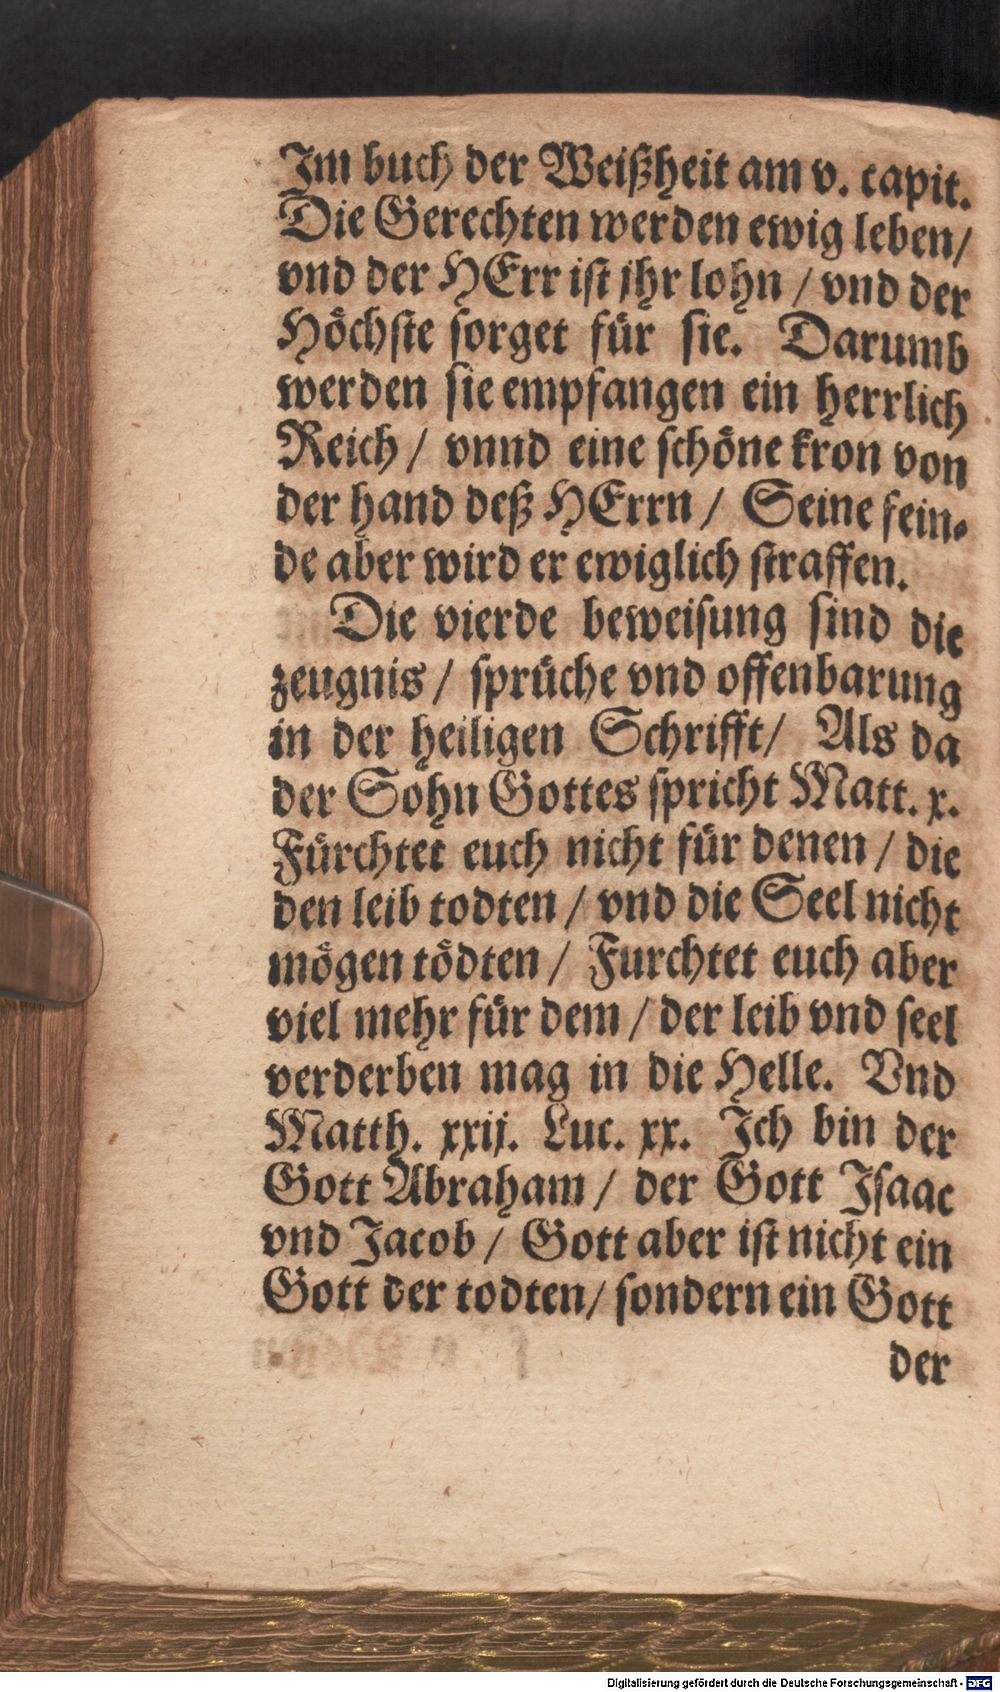 Im buch der Weißheit am v. capit.
Die Gerechten werden ewig leben/
vnd der HErr ist jhr lohn / vnd der
Höchste sorget für sie. Darumb
werden sie empfangen ein herrlich
Reich / vnnd eine schöne kron von
der hand deß HErrn / Seine fein-
de aber wird er ewiglich straffen.
Die vierde beweisung sind die
zeugnis / sprüche vnd offenbarung
in der heiligen Schrifft/ Als da
der Sohn Gottes spricht Matt. x.
Fürchtet euch nicht für denen / die
den leib todten / vnd die Seel nicht
mögen tödten / Furchtet euch aber
viel mehr für dem / der leib vnd seel
verderben mag in die Helle. Vnd
Matth. xxij. Luc. xx. Ich bin der
Gott Abraham / der Gott Isaac
vnd Jacob / Gott aber ist nicht ein
Gott der todten/ sondern ein Gott
der
Digitalisierung gefördert durch die Deutsche Forschungsgemeinschaft - DFG